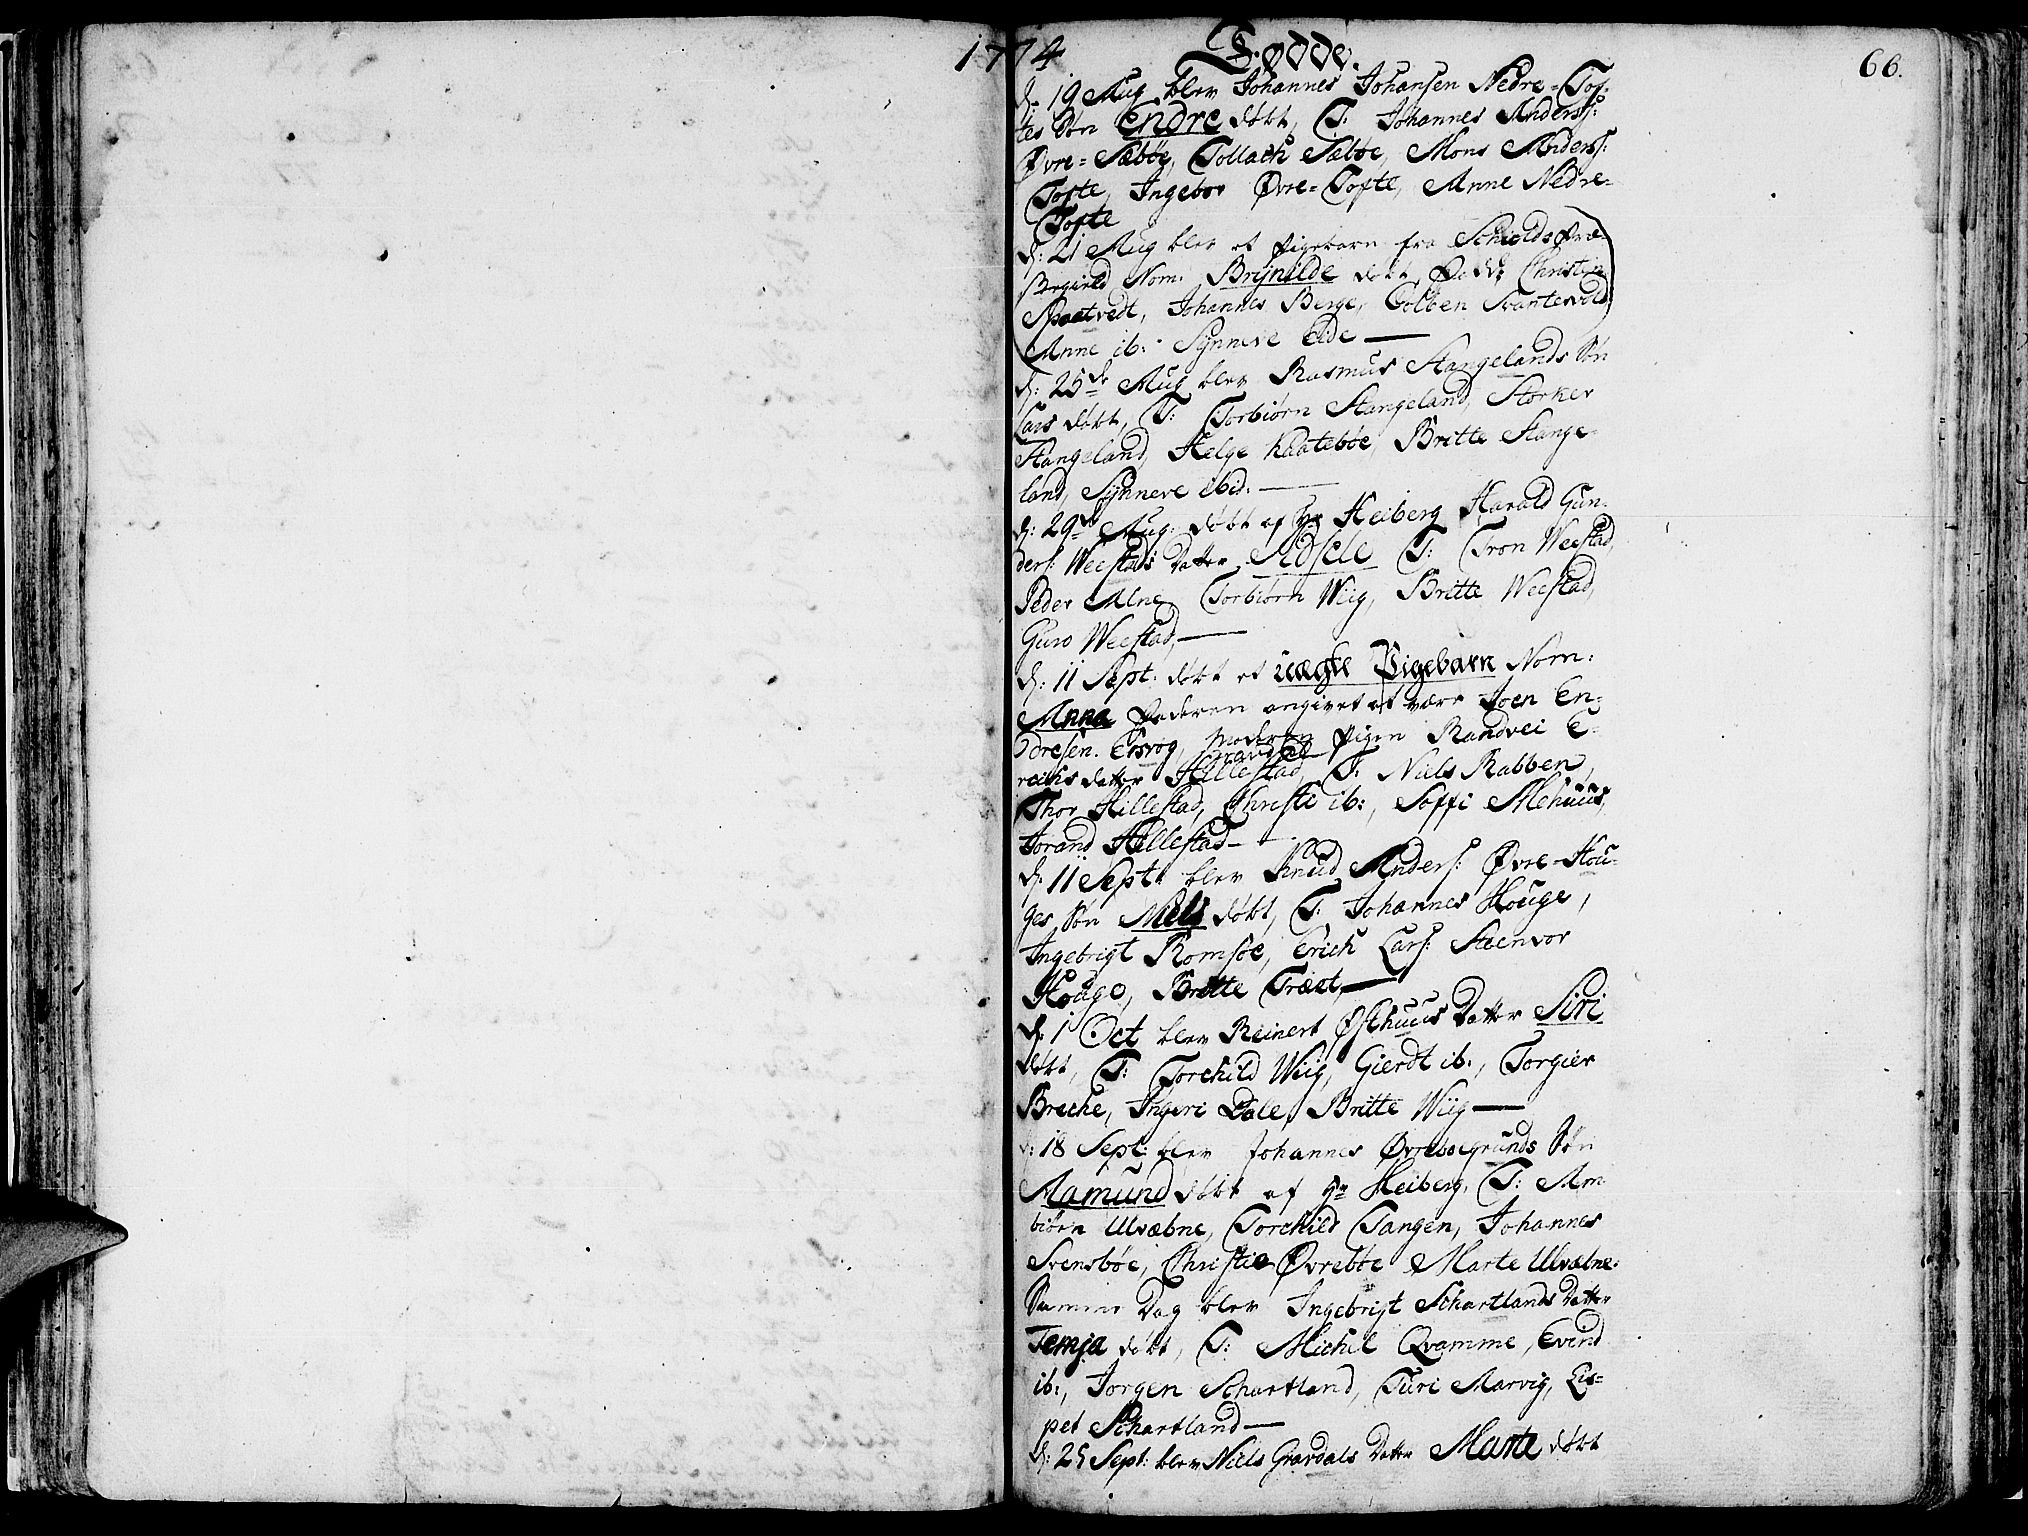 1774 Fødde.
66.
d. 19 Aug blev Johannes Johansen Nedre-Tof-
tes Søn Endre døbt, T: Johannes Anders:
Øvre-Sæbøe, Tollach Sælbøe, Mons Anders:
Tofte, Ingebor Øvre-Tofte, Anne Nedre-
Tofte
d: 21 Aug blev et Pigebarn fra Schiolds Præ-
Nom: Brynilde døbt, Fadd: Christen
Spaatvedt, Johannes Berge, Colben Svartevold
Anne ib: Synneve Eide —
d: 25de Aug blev Rasmus Stangelands Søn
Lars døbt, T: Torbiørn Stangeland, Storker
Stangeland, Helge Kaatebøe, Britte Stange-
land, Synneve ibid: —
d: 29de Aug: døbt af Hr Heiberg Harald Gun-
ders: Weestads Datter Adsele T: Tron Weestad,
Peder Alne, Torbiørn Wiig, Britte Weestad,
Guro Weestad, —
d: 11 Sept: døbt et uægte Pigebarn Nom:
Anna Faderen angivet at være Joen En-
dresen. Ersvog, Moderen Pigen Randvei E-
richsdatter Hillestad, T: Niels Rabben,
Thor Hillestad, Christi ib:, Soffi Mehuus,
Jorand Hillestad —
d. 11 Sept: blev Knud Anders: Øvre-Hou-
ges Søn Niels døbt, T: Johannes Houge,
Ingebrigt Romsøe, Erich Lars: Steenvor
Houge, Britte Træet, —
d. 1 Oct blev Reinert Østhuus Datter Siri
døbt, T: Torchild Wiig, Gierdt ib:, Torgier
Breche, Ingeri Dale, Britte Wiig —
d: 18 Sept: blev Johannes Øvrebøegrunds Søn
Aamund døbt af Hr Heiberg, T: Am-
biørn Ulvæbne, Torchild Tangen, Johannes
Svensbøe, Christie Øvrebøe Marte Ulvæbne.
Samme Dag blev Ingebrigt Schartlands Datter
Temja døbt, T: Michel Qvamme, Evind
ib:, Jorgen Schartland, Turi Marvig, Lis-
pet Schartland —
d: 25 Sept: blev Niels Grardals Datter Marte døbt